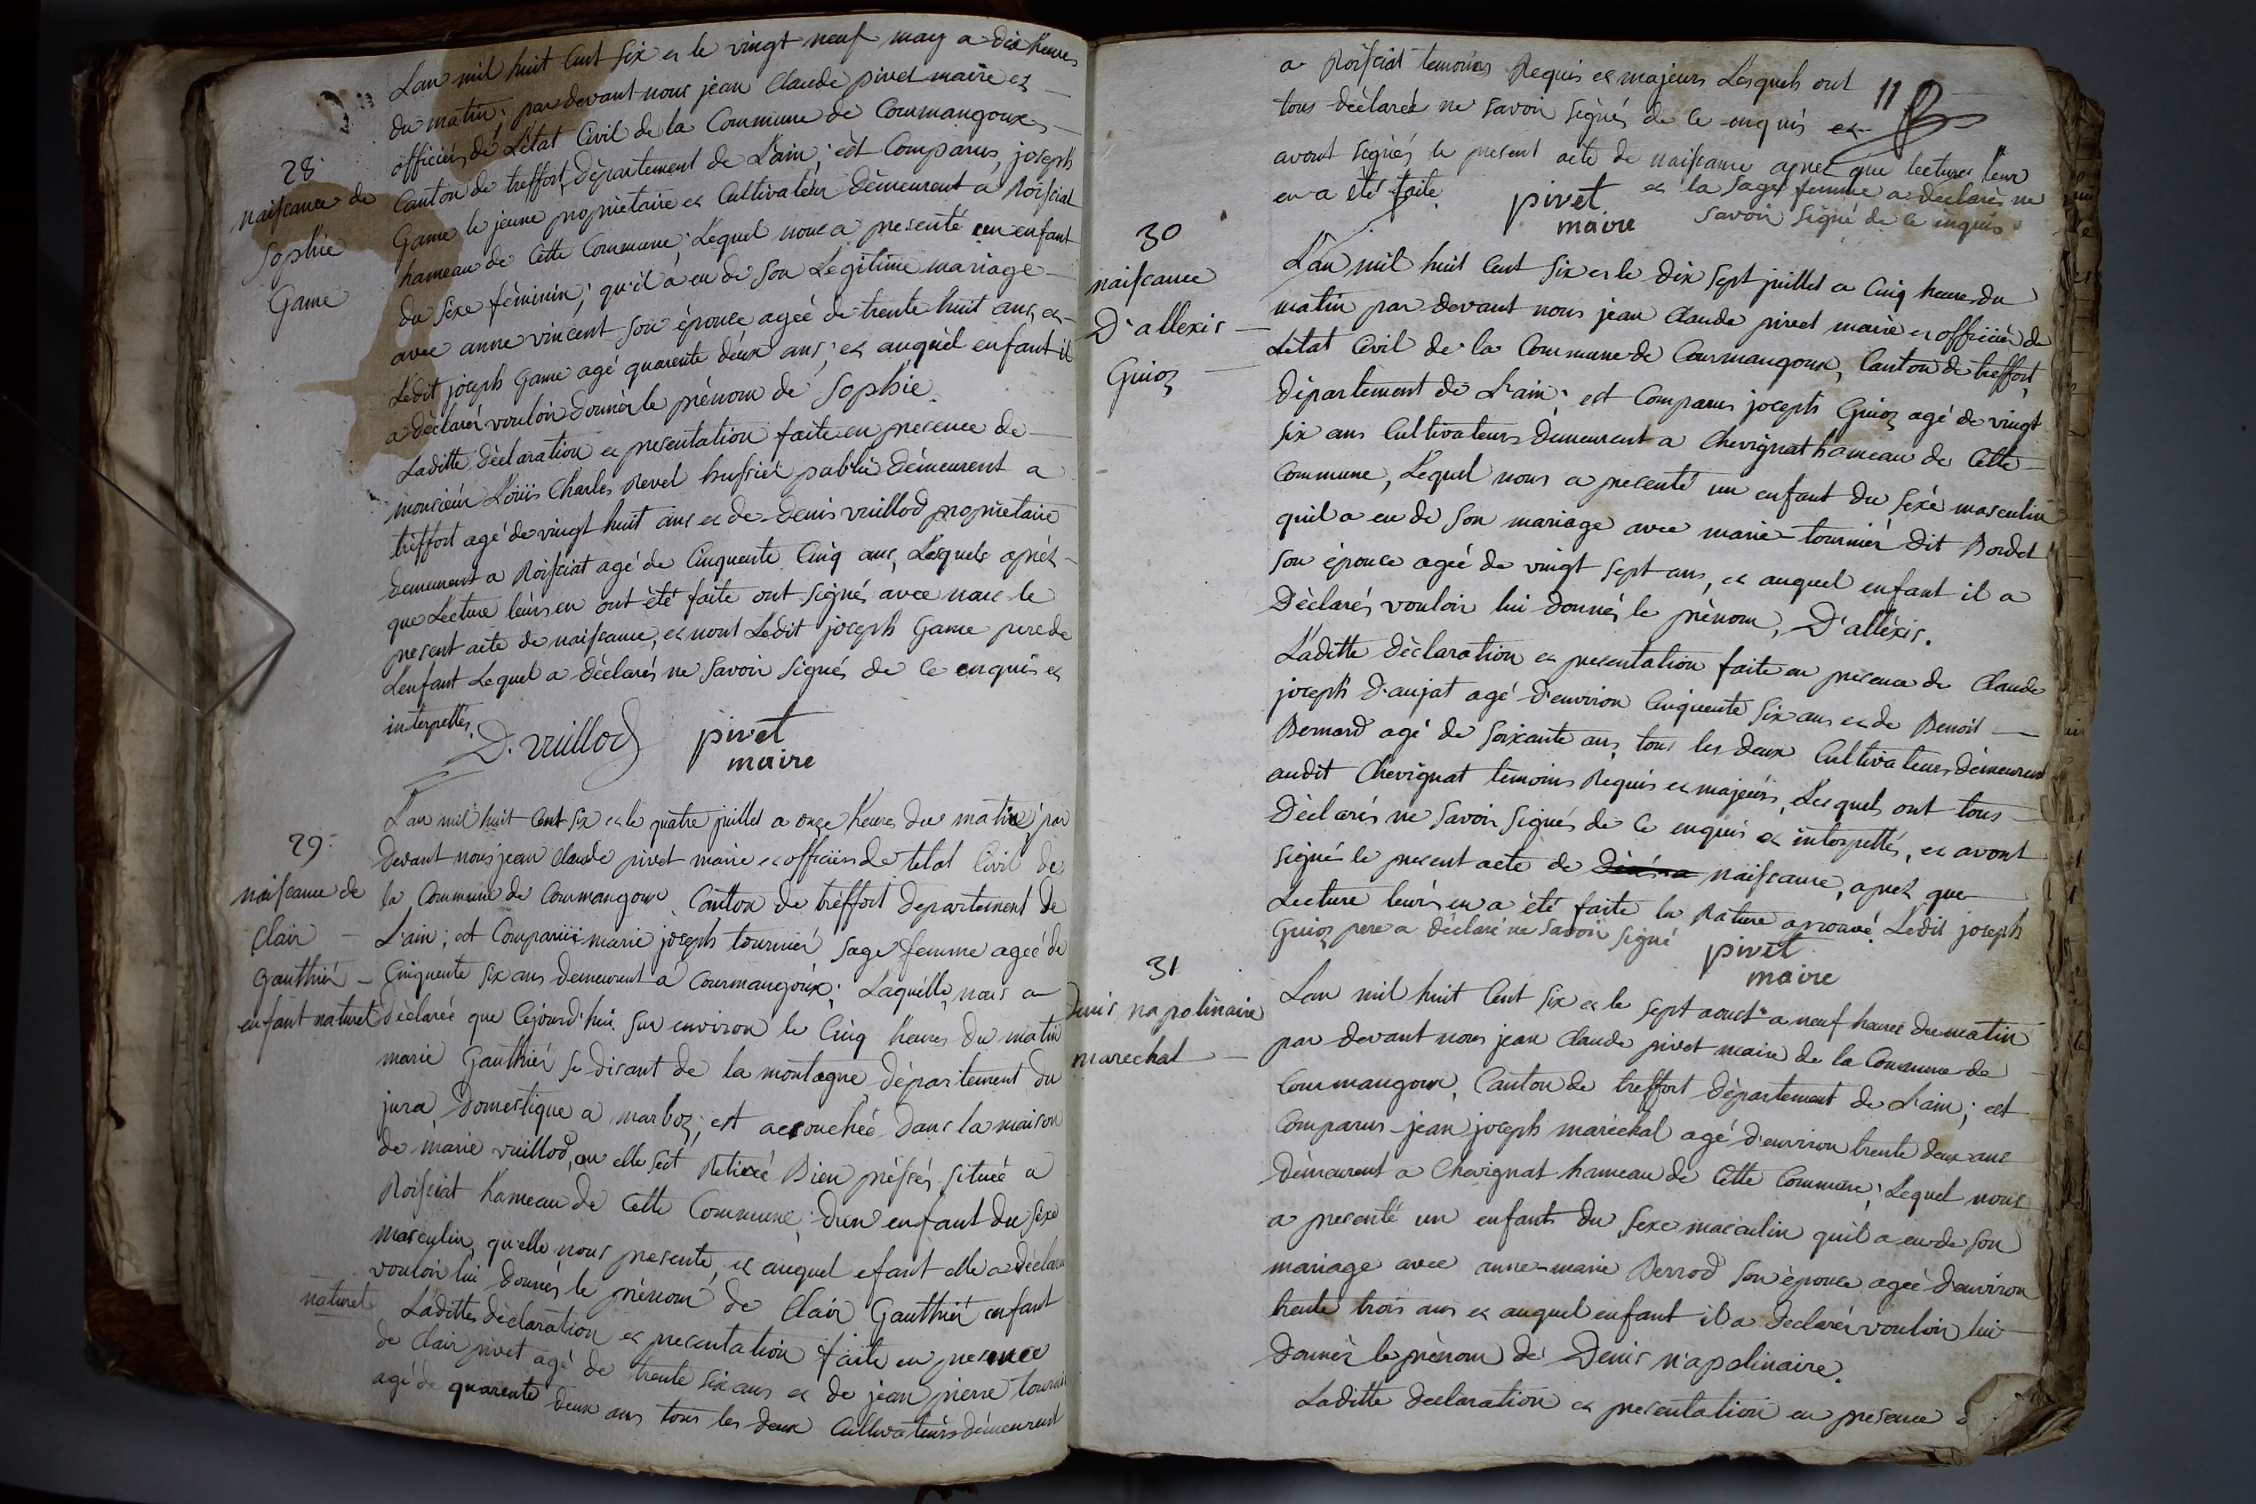 Lan mil huit Cent Six et le vingt neuf may a dix heures
du matin; par devant nous jean Claude pivet maire et
officiér de L'état Civil de la Commune de Courmangoux,
28
Canton de treffort, département de L'ain; est Comparus, joseph
naissance de
Game le jeune propriétaire et Cultivateur démeurent a Roissiat
Sophie
hameau de Cette Commune; Lequel nous a presenté un enfant
Game
du sexe féminin; qu'il a eu de son Légitime mariage
avec anne vincent son épouse agée de trente huit ans, et
Ledit joseph Game agé quarente deux ans; et auquel enfant il
a déclarér vouloir donnér le prénom de Sophie.
Laditte déclaration et presentation faite en presence de
monsieur Loüis Charles Revel huissier publié démeurent a
tréffort agé de vingt huit ans et de denis vuillod propriétaire
demeurent a Roissiat agé de Cinquente Cinq ans, Lesquels apréz
que Lecture leurs en ont été faite ont signés avec nous le
present acte de naissance, et nont Ledit joseph Game pere de
L'enfant Lequel a déclarés ne savoir signés de Ce enquis et
interpellés.
D. vuillod pivet
maire
29
Lan mil huit Cent Six et le quatre juillet a onze heures du matin; par
devant nous jean Claude pivet maire et officiér de l'etat Civil de
naissance de
la Commune de Courmangoux Canton de tréffort département de
Clair
L'ain; est Comparüe marie joseph tourniér sage femme agée de
Gauthiér
Cinquente six ans demeurent a Courmangoux; Laquélle nous a
enfant naturel
déclarée que Cejourd'hui sur environ le Cinq heures du matin
marie Gauthiér se disant de la montagne département du
jura domestique a marboz; est accouchée dans la maison
de marie vuillod, ou elle sest Retirée Bien préssés située a
Roissiat hameau de Cette Commune; d'un enfant du séxe
masculin, qu'elle nous presente, et auquel efant elle a déclaré
vouloir lui donnés le prénom de Clair Gauthiér enfant
naturel
Laditte déclaration et presentation faite en presence
de Clair pivet agé de trente six ans et de jean pierre tournier
agé de quarente deux ans tous les deux Cultivateurs démeurent
11
a Roissiat temoins Requis et majeurs Lesquels ont
tous déclarés ne savoir signés de Ce enquis et
avont signés le present acte de naissance aprez que lecture leur
en a été faite. et la sage femme a declarés ne
pivet savoir signé de Ce enquis
maire
30
naissance
D'allexis
Guioz
Lan mil huit Cent Six et le dix sept juillet a Cinq heures du
matin par devant nous jean Claude pivet maire et officiér de
Létat Civil de la Commune de Courmangoux, Canton de treffort,
département de L'ain; est Comparus joseph Guioz agé de vingt
six ans Cultivateurs démeurent a Chevignat hameau de Cette
Commune, Lequel nous a presenté un enfant du séxe masculin
quil a eu de son mariage avec marie tourniér dit Bordet
son épouse agée de vingt sept ans, et auquel enfant il a
Déclarés vouloir lui donnés le prénom, D'alléxis.
Laditte déclaration et presentation faite en presence de Claude
joseph d'aujat agé d'environ Cinquente Six ans et de Benoit
Bernard agé de soixante ans, tous les deux Cultivateurs démeurent
audit Chevignat temoins Requis et majeurs, Lesquels ont tous
Déclarés ne savoir signés de Ce enquis et interpellés, et avont
signé le present acte de naissance, aprez que
Lecture leurs en a été faite la Rature aprouvé Ledit joseph
Guioz pere a déclaré ne savoir signé
pivet
maire
31
Denis napolinaire
marechal
Lan mil huit Cent Six et le sept aoust a neuf heures du matin
par devant nous jean Claude pivet maire de la Commune de
Courmangoux, Canton de treffort département de L'ain; est
Comparus jean joseph maréchal agé d'environ trente deux ans
démeurent a Chevignat hameau de Cette Commune; Lequel nous
a presenté un enfant du sexe masculin quil a eu de son
mariage avec anne-marie Perrod son épouse agée d'environ
trente trois ans et auquel enfant il a déclarér vouloir lui
donnér le prénom de Denis n'apolinaire.
Laditte declaration et presentation en presence